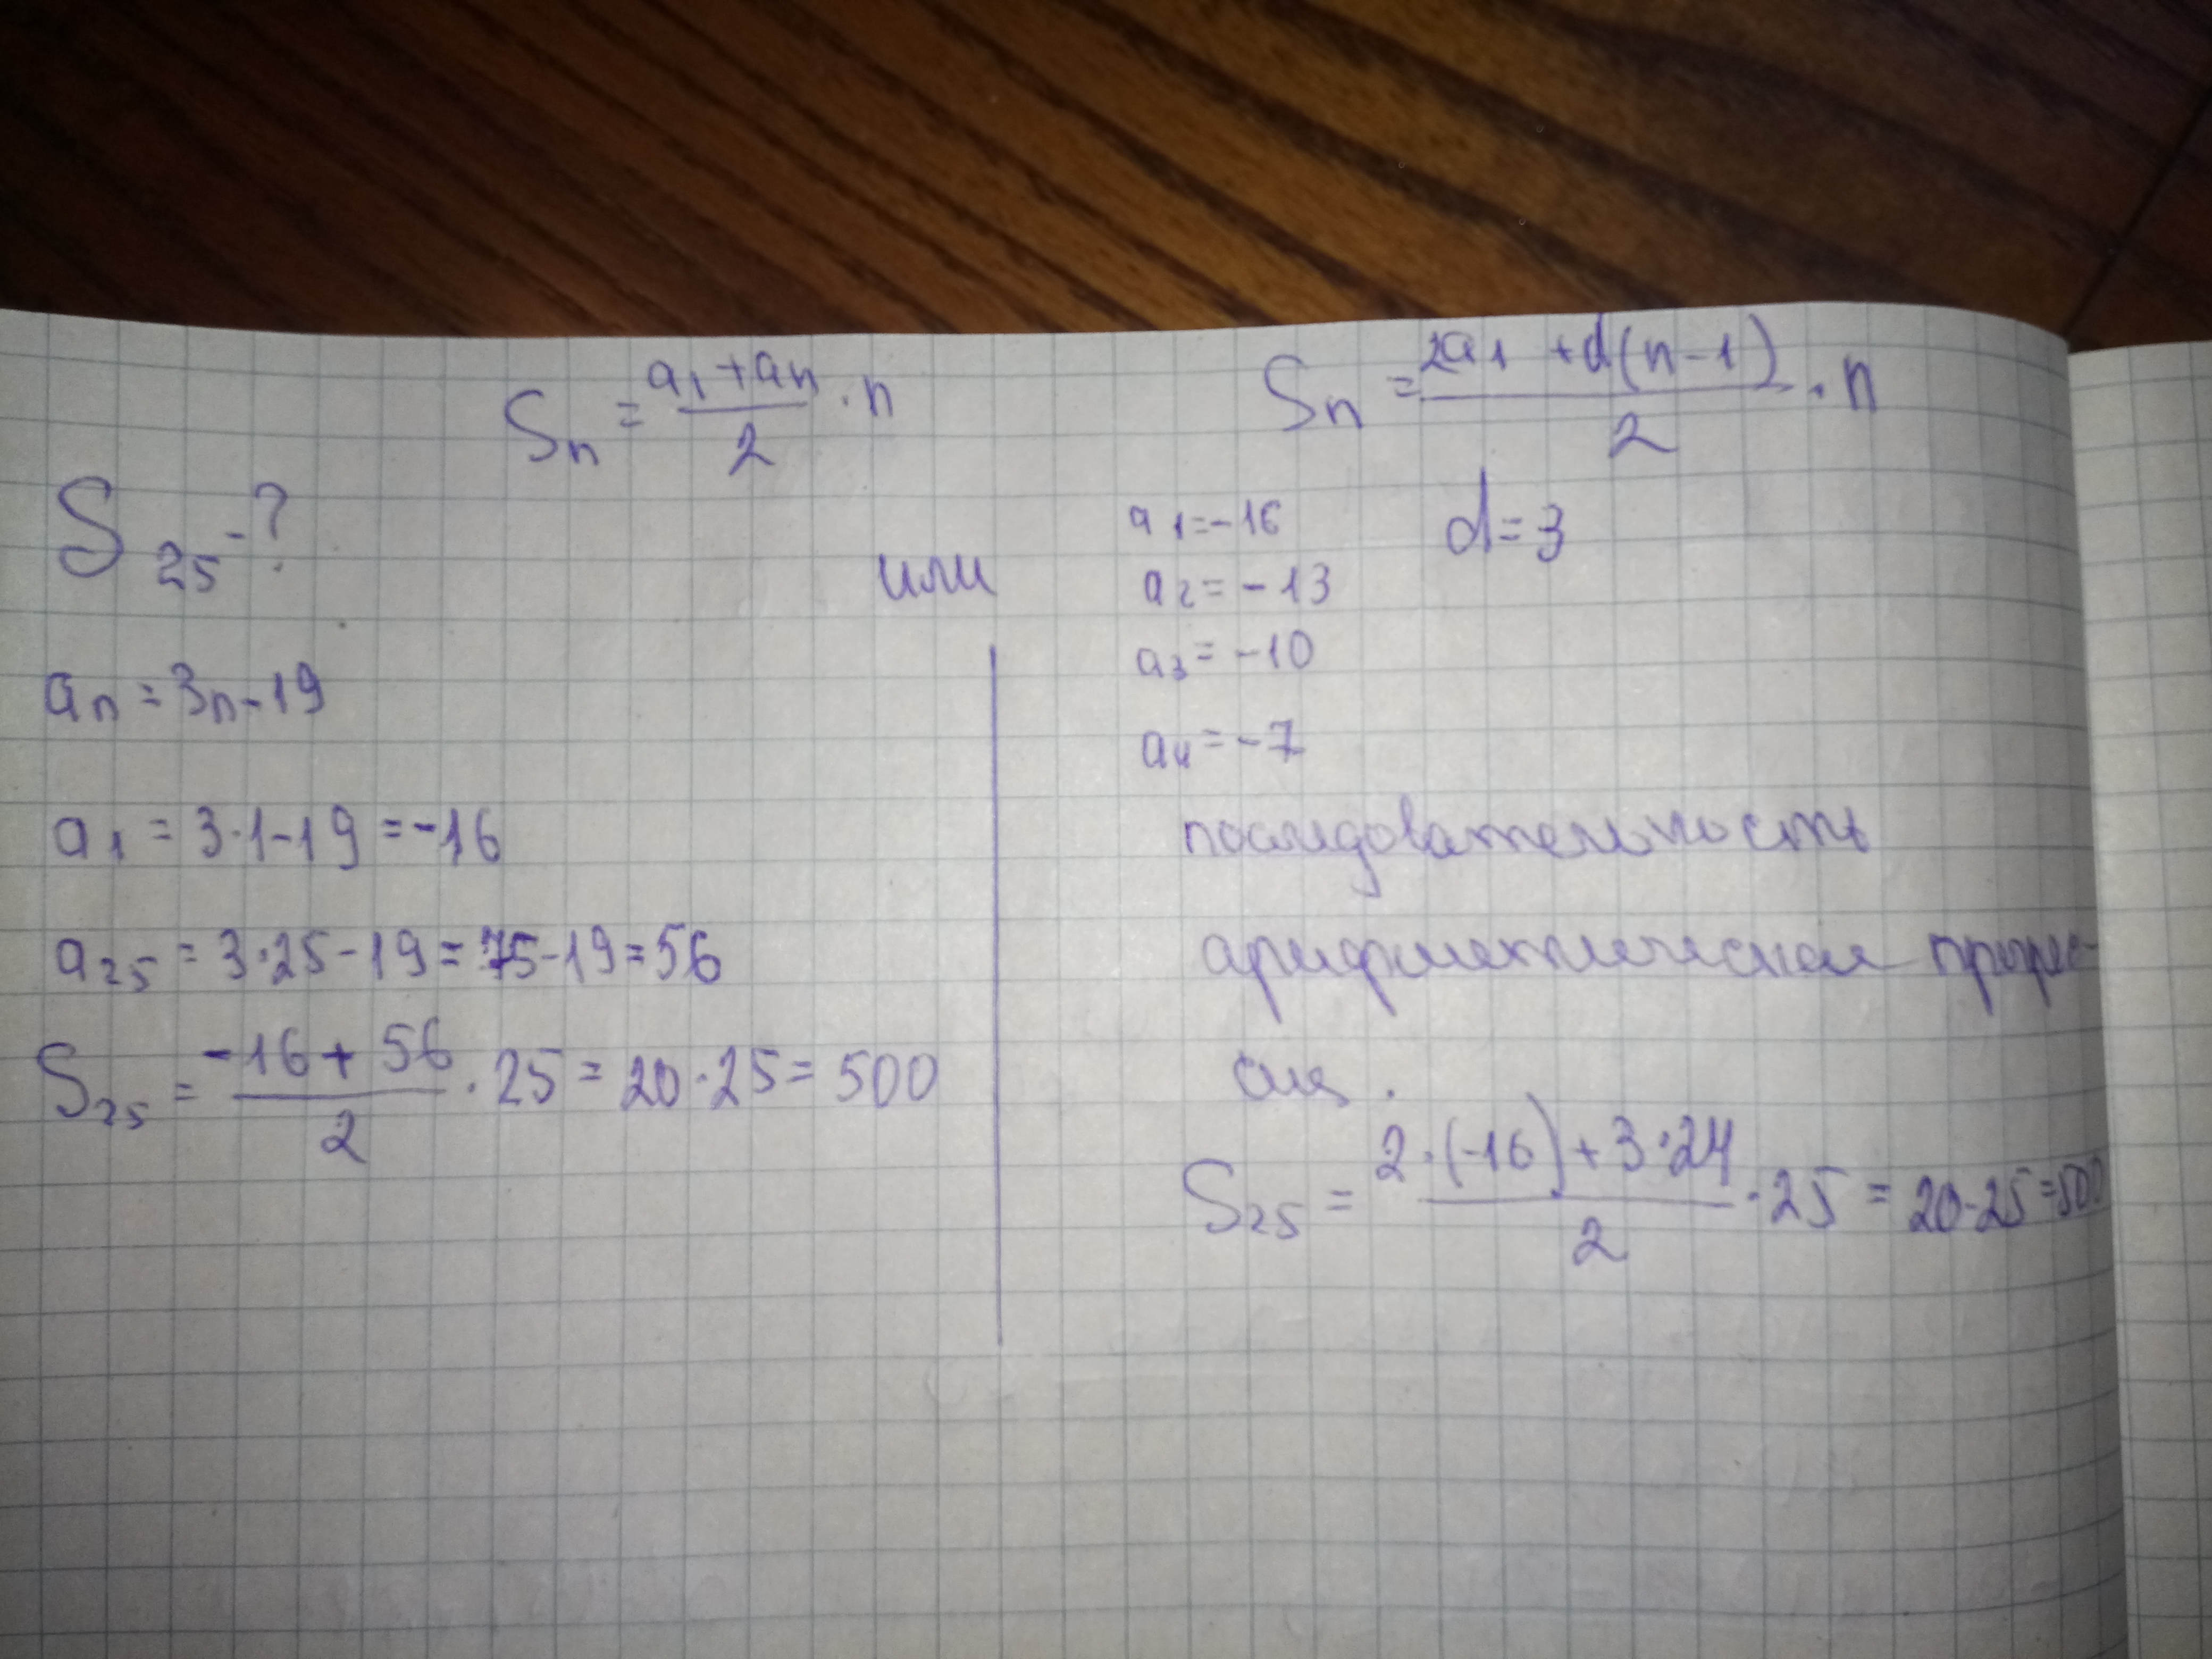 Sn = (a1 + an)/2 · n
Sn = (2a1 + d(n-1))/2 · n
S25 - ?
или
an = 3n - 19
a1 = 3·1 - 19 = -16
a25 = 3·25 - 19 = 75 - 19 = 56
S25 = (-16 + 56)/2 · 25 = 20·25 = 500
a1 = -16
d = 3
a2 = -13
a3 = -10
a4 = -7
последовательность
арифметическая прогрес-
сия.
S25 = (2·(-16) + 3·24)/2 · 25 = 20·25 = 500